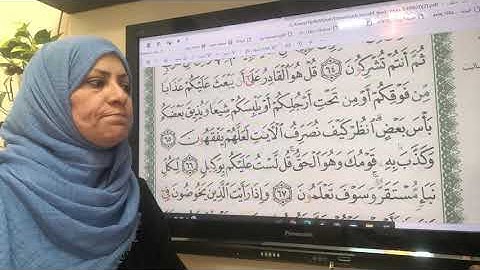 ثُمَّ أَنتُمْ تُشْرِكُونَ ٦٤ قُلْ هُوَ الْقَادِرُ عَلَىٰ أَن يَبْعَثَ عَلَيْكُمْ عَذَابًا
مِّن فَوْقِكُمْ أَوْ مِن تَحْتِ أَرْجُلِكُمْ أَوْ يَلْبِسَكُمْ شِيَعًا وَيُذِيقَ بَعْضَكُم
بَأْسَ بَعْضٍ ۗ انظُرْ كَيْفَ نُصَرِّفُ الْآيَاتِ لَعَلَّهُمْ يَفْقَهُونَ ٦٥
وَكَذَّبَ بِهِ قَوْمُكَ وَهُوَ الْحَقُّ ۚ قُل لَّسْتُ عَلَيْكُم بِوَكِيلٍ ٦٦ لِّكُلِّ
نَبَإٍ مُّسْتَقَرٌّ ۚ وَسَوْفَ تَعْلَمُونَ ٦٧ وَإِذَا رَأَيْتَ الَّذِينَ يَخُوضُونَ فِي
Panasonic